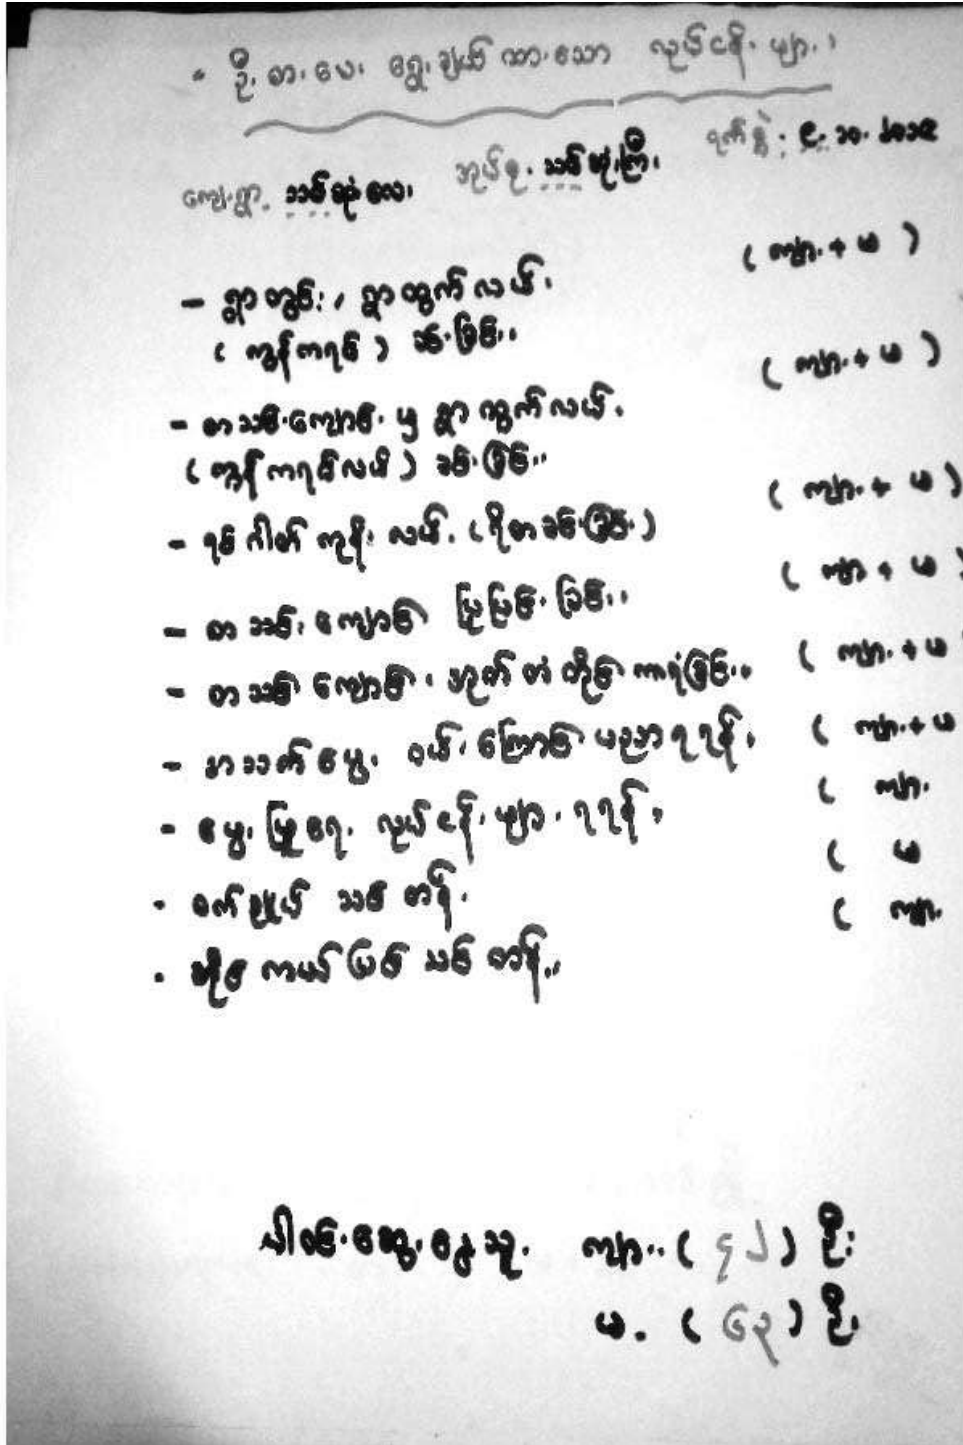 " ဦးစားပေး ရွေးချယ်ထားသော လုပ်ငန်းများ "
ကျေးရွာ - သစ်ဆုံလေး အုပ်စု - သစ်ဆုံကြီး ရက်စွဲ - ၉.၁၀.၂၀၁၅
- ရွာတွင်း၊ ရွာထွက်လမ်း ( ကျား + မ )
( ကွန်ကရစ် ) ခင်းခြင်း။
- စာသင်ကျောင်းမှ ရွာထွက်လမ်း ( ကျား + မ )
( ကွန်ကရစ်လမ်း ) ခင်းခြင်း။
- ရင် ကူး လမ်း ( ခင်းခြင်း ) ( ကျား + မ )
- စာသင်ကျောင်း ပြုပြင်ခြင်း။ ( ကျား + မ )
- စာသင်ကျောင်း အုတ်တံတိုင်းကာရံခြင်း။ ( ကျား + မ
- အသက်မွေး ဝမ်းကြောင်းပညာရရန်။ ( ကျား + မ
- မွေးမြူရေး လုပ်ငန်းများ ရရန်။ ( ကျား
- စက်ချုပ် သင်တန်း ( မ
- ဆိုင်ကယ်ပြင် သင်တန်း။ ( ကျား
ပါဝင်ဆွေးနွေးသူ ကျား - ( ၄၂ ) ဦး
မ - ( ၆၃ ) ဦး